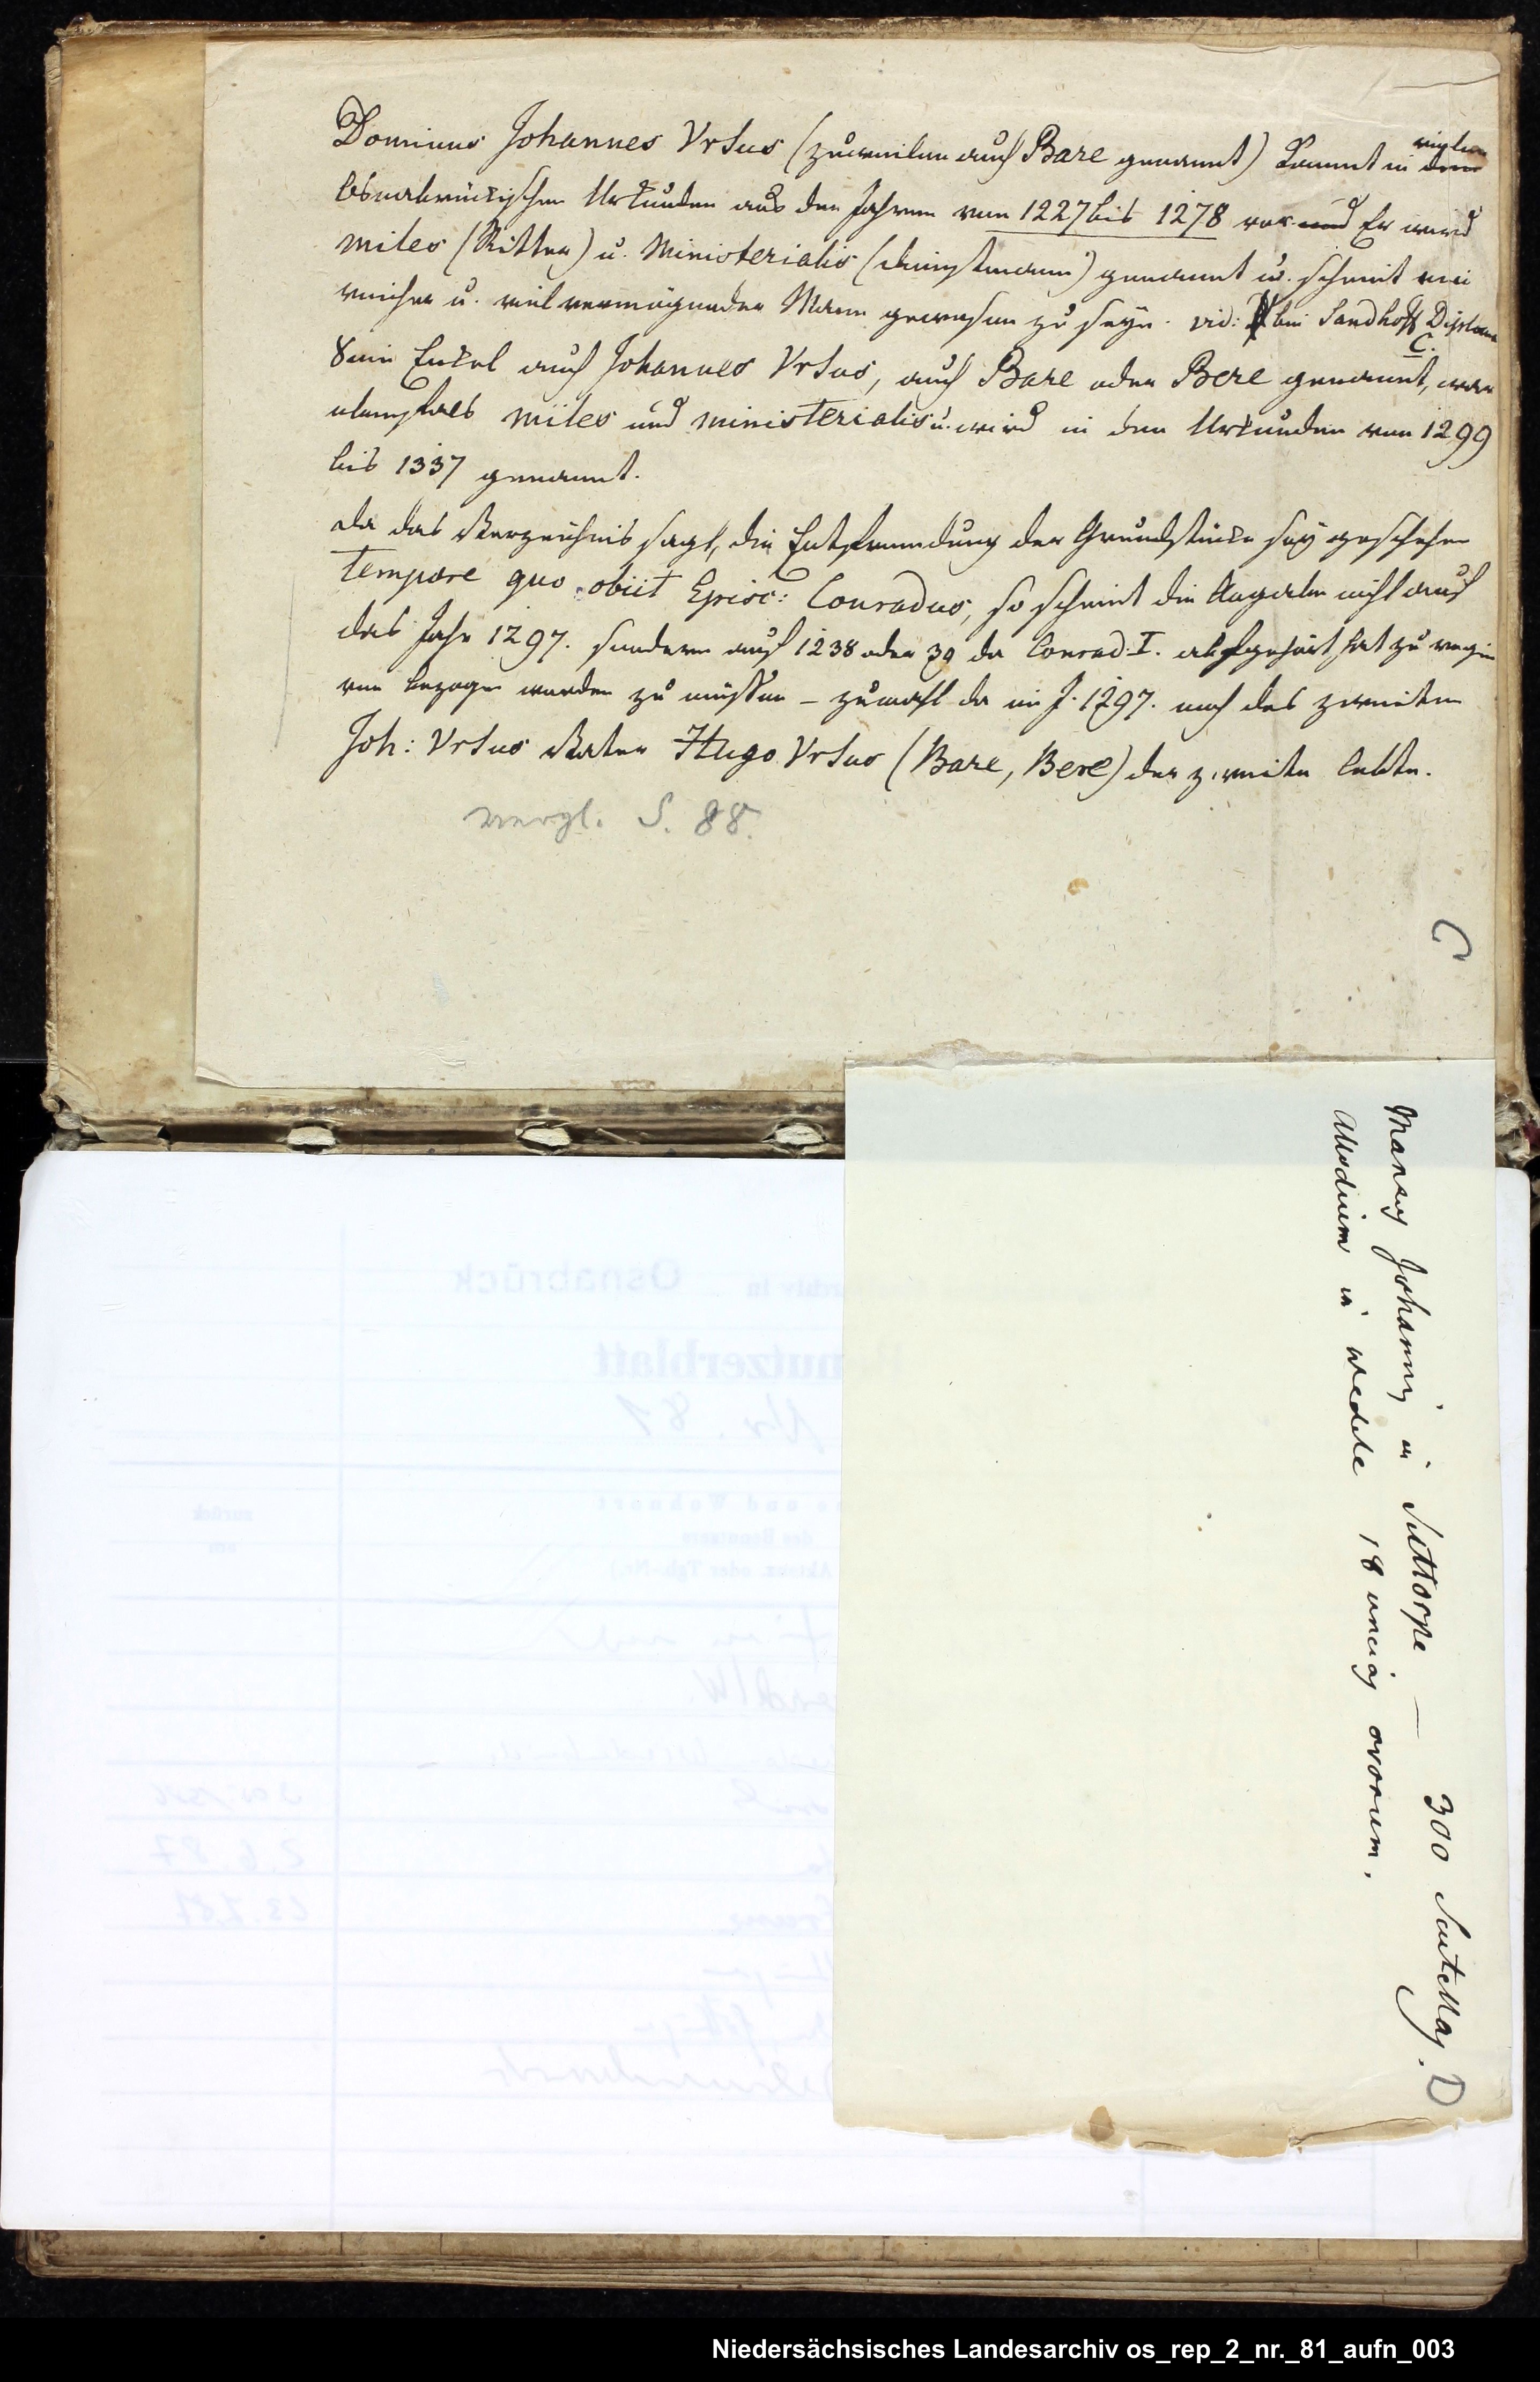 Dominus Johannes Vrsus (zuweilen auch Bare genannt) kommt in den vielen
Osnabrückischen Urkunden aus den Jahren von 1227 bis 1278 vor und Er wird
miles (Ritter) u. Ministerialis (Dienstmann) genannt u. scheint ein
reicher u. vielvermögender Mann gewesen zu seyn. vid: bei Sandhoff Diplom
C.
Sein Enkel auch Johannes Vrsus, auch Bare oder Bere genannt, war
ebenfals miles und ministerialis u. wird in den Urkunden von 1299
bis 1337 genannt.
Da das Verzeichnis sagt, die Entfremdung der Grundstücke sey geschehen
tempore quo obiit Episc: Conradus, so scheint die Angabe nicht auf
das Jahr 1297. sondern auf 1238 oder 39 da Conrad I. aufgehört hat zu regie
ren bezogen werden zu müssen – zumahl da im J. 1297. noch des zweiten
Joh: Vrsus Vater Hugo Vrsus (Bare, Bere) der zweite lebte.
vergl. S. 88.
C
Mansus Johannis in Suttorpe — 300 Scutellas. D
Allodium in Wedele 18 uncias ovorum.
Osnabrück
Benutzerblatt
Nr. 81
zurück
am
und Wohnort
des Benutzers
2.6.87
13.7.87
Niedersächsisches Landesarchiv os_rep_2_nr._81_aufn_003